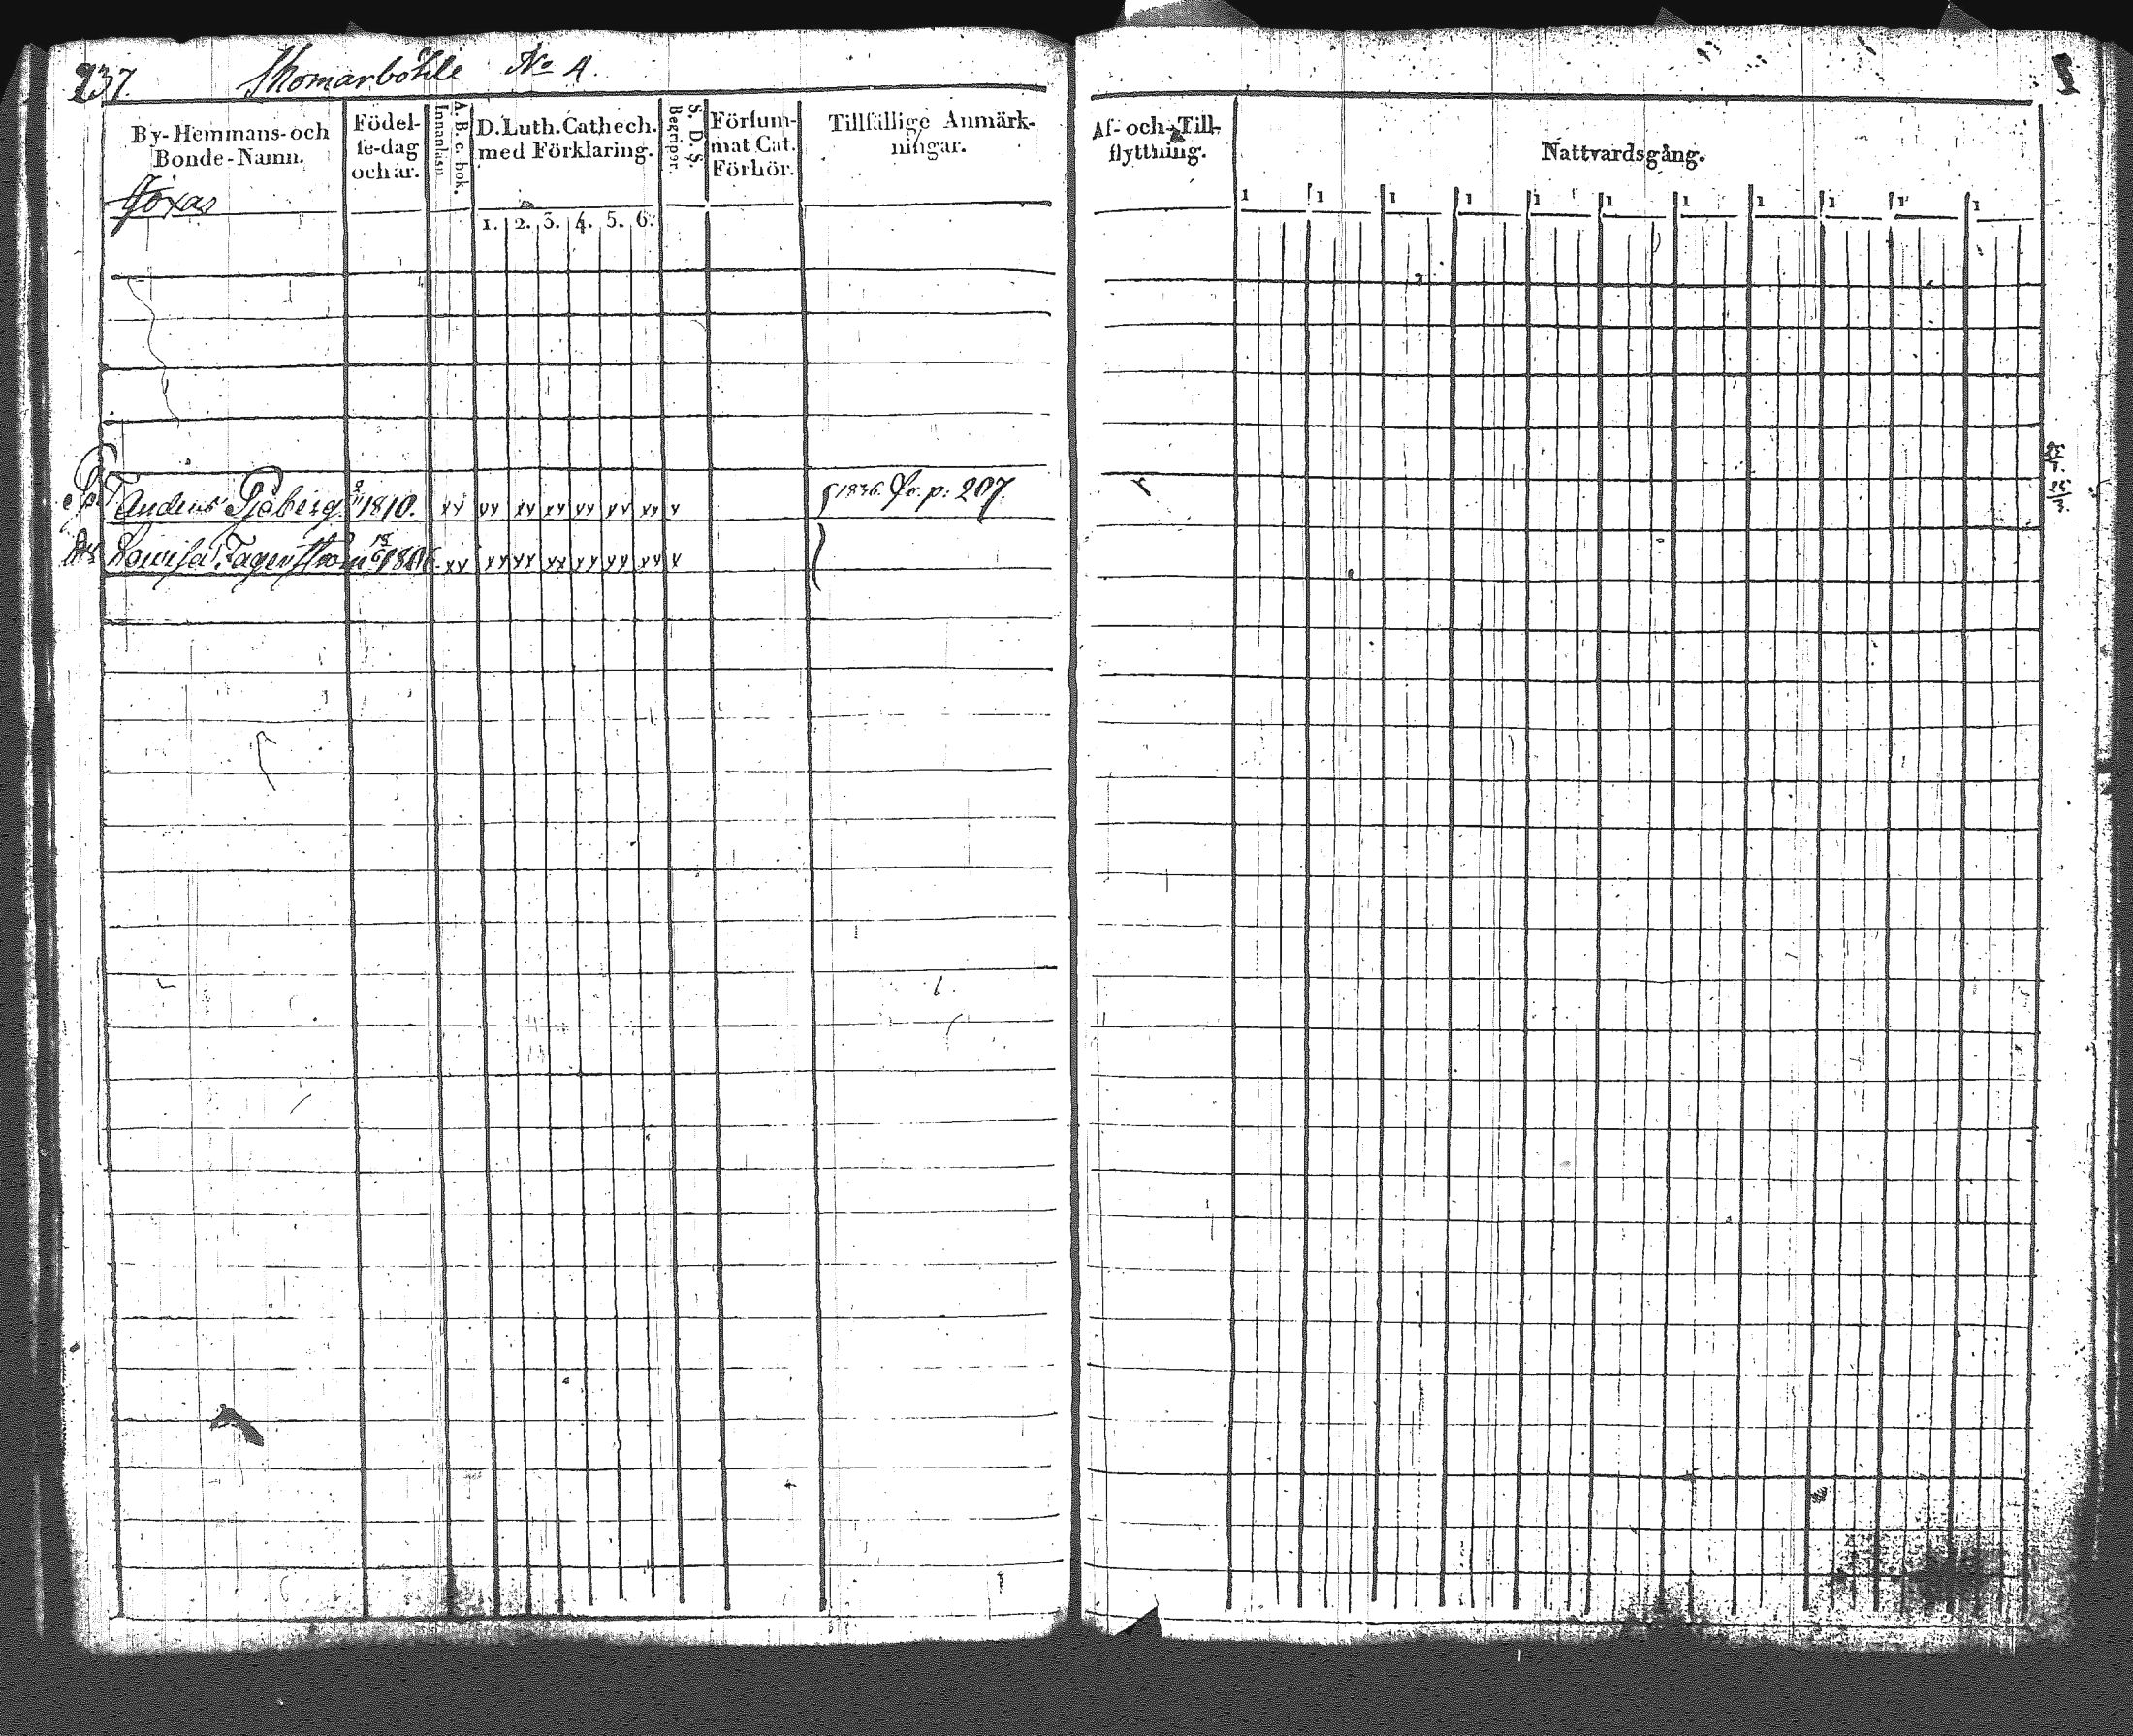 237. Skomarböhle No 4.
By-Hemmans-och Bonde-Namn.
Födel-se-dag och år.
A. B. c. bok. Innanläsn
D. Luth. Cathech. med Förklaring.
S. D. S. Begriper.
Försum-mat Cat. Förhör.
Tillfällige Anmärk-ningar.
Af- och Till-flyttning.
Nattvardsgång.
Jöxas
1. 2. 3. 4. 5. 6.
1 1 1 1 1 1 1 1 1 1 1
Anders Sjöberg 1810. xx xx xx xx xx xx xx x 1836. p. 207.
Lovisa Fagerström xx xx xx xx xx xx xx x